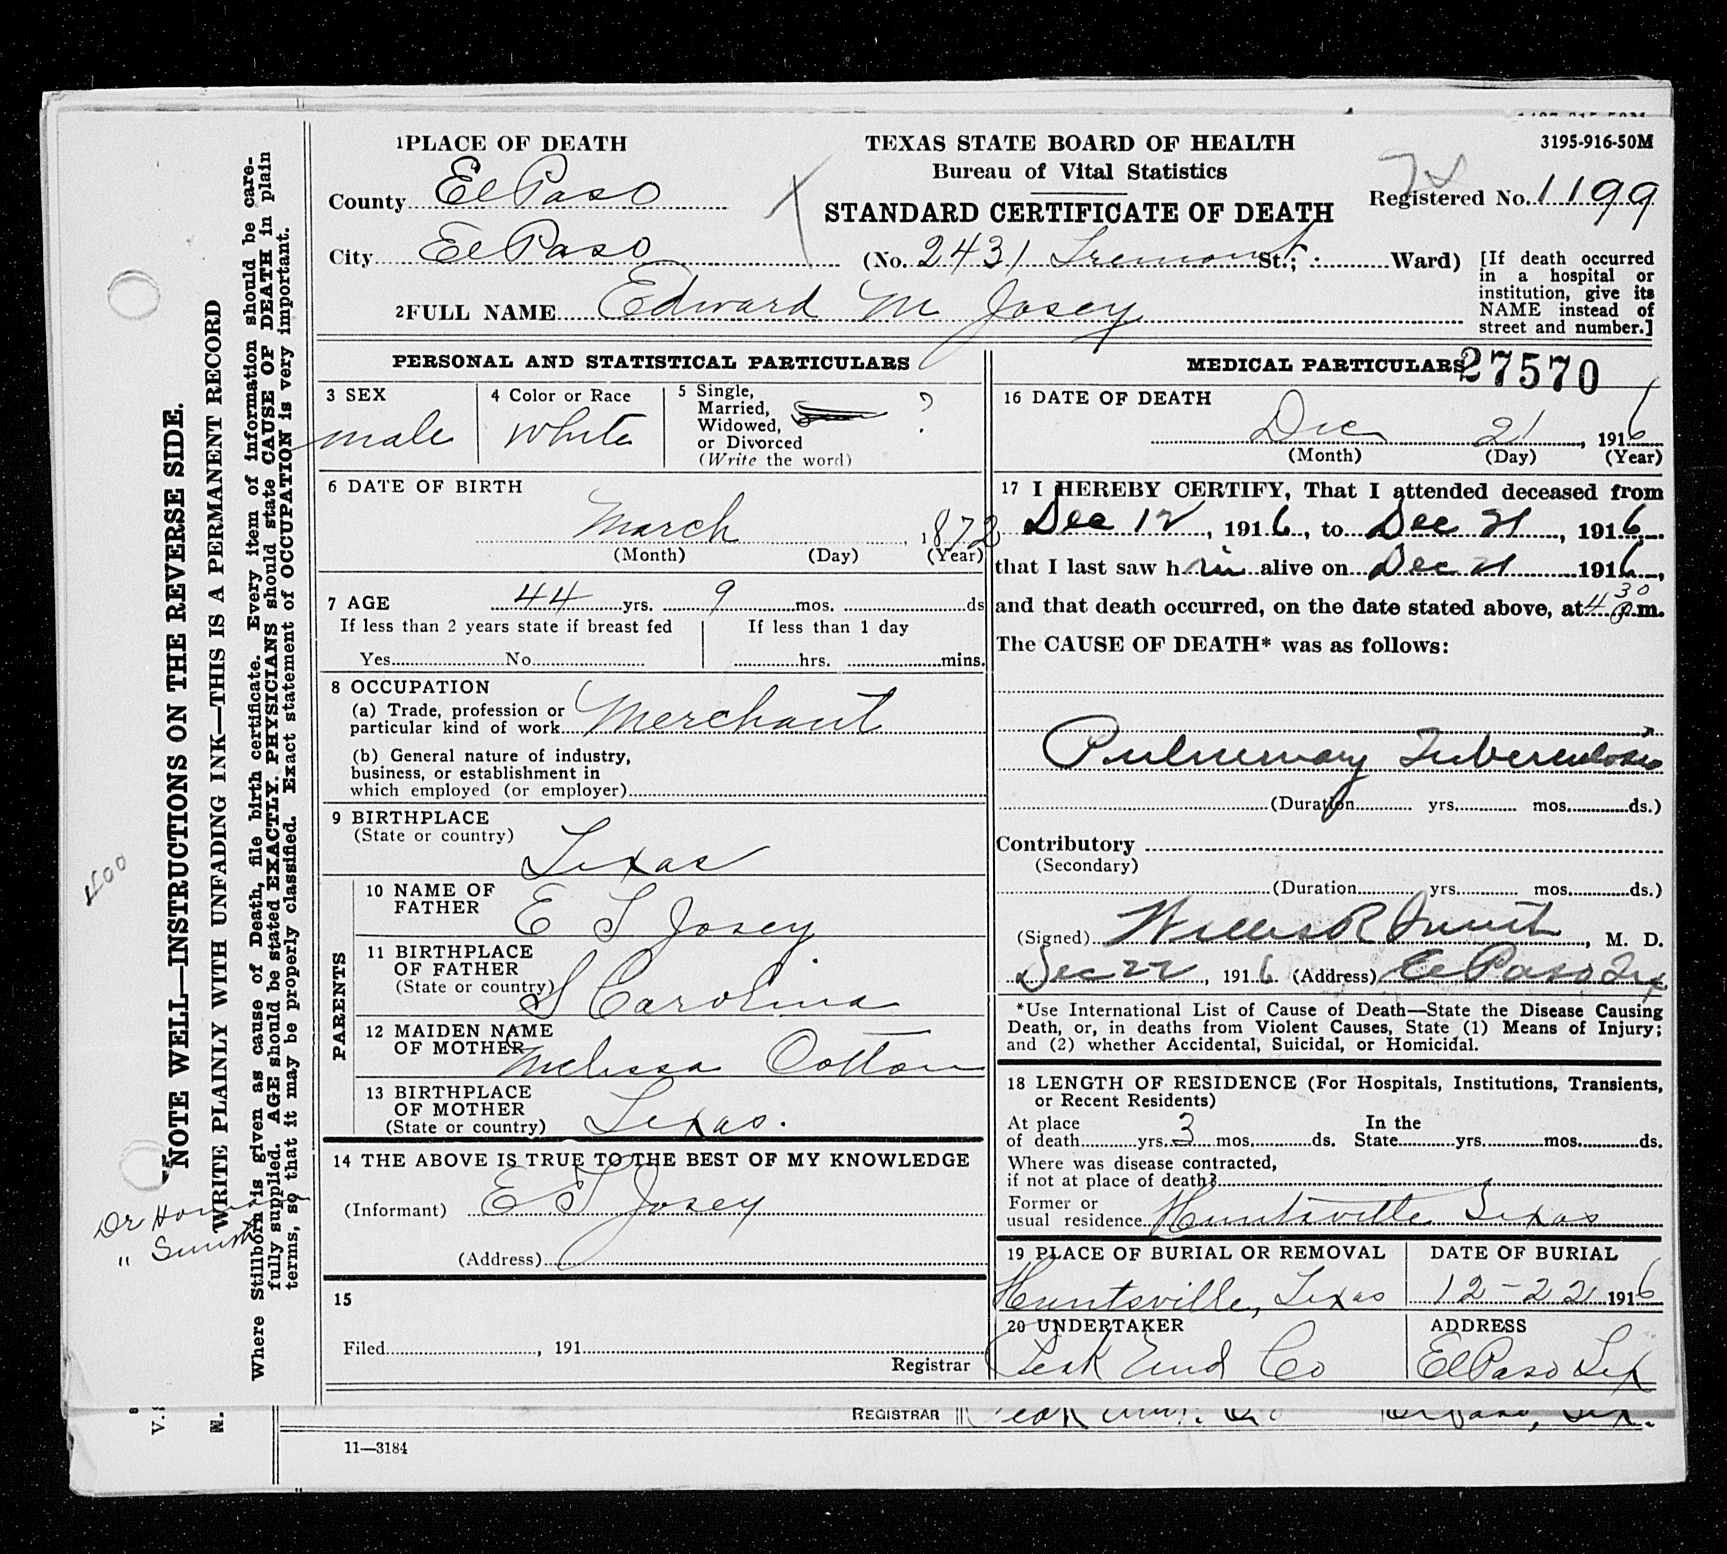 3195-916-50M
1 PLACE OF DEATH
TEXAS STATE BOARD OF HEALTH
Bureau of Vital Statistics
STANDARD CERTIFICATE OF DEATH
County El Paso
Registered No. 1199
City El Paso (No. 2431 Tremont St.; Ward)
[If death occurred
in a hospital or
institution, give its
NAME instead of
street and number.]
2 FULL NAME Edward M Josey
PERSONAL AND STATISTICAL PARTICULARS
3 SEX
male
4 Color or Race
White
5 Single,
Married,
Widowed,
or Divorced
(Write the word)
?
6 DATE OF BIRTH
March 1872
(Month) (Day) (Year)
7 AGE 44 yrs. 9 mos. ds
If less than 2 years state if breast fed
Yes No
If less than 1 day
hrs. mins.
8 OCCUPATION
(a) Trade, profession or
particular kind of work Merchant
(b) General nature of industry,
business, or establishment in
which employed (or employer)
9 BIRTHPLACE
(State or country)
Texas
PARENTS
10 NAME OF
FATHER
E T Josey
11 BIRTHPLACE
OF FATHER
(State or country)
S Carolina
12 MAIDEN NAME
OF MOTHER
Melissa Cotton
13 BIRTHPLACE
OF MOTHER
(State or country) Texas.
14 THE ABOVE IS TRUE TO THE BEST OF MY KNOWLEDGE
(Informant) E T Josey
(Address)
15
Filed , 191
Registrar
MEDICAL PARTICULARS
27570
16 DATE OF DEATH
Dec 21, 1916
(Month) (Day) (Year)
17 I HEREBY CERTIFY, That I attended deceased from
Dec 12, 1916, to Dec 21, 1916
that I last saw him alive on Dec 21 1916,
and that death occurred, on the date stated above, at 4 30 P.m.
The CAUSE OF DEATH* was as follows:
Pulmonary Tuberculosis
(Duration yrs. mos. ds.)
Contributory
(Secondary)
(Duration yrs. mos. ds.)
(Signed) Smith, M. D.
Dec 22, 1916 (Address) El Paso Tex
*Use International List of Cause of Death—State the Disease Causing
Death, or, in deaths from Violent Causes, State (1) Means of Injury;
and (2) whether Accidental, Suicidal, or Homicidal.
18 LENGTH OF RESIDENCE (For Hospitals, Institutions, Transients,
or Recent Residents)
At place
of death yrs. 3 mos. ds. In the
State yrs. mos. ds.
Where was disease contracted,
if not at place of death?
Former or
usual residence Huntsville Texas
19 PLACE OF BURIAL OR REMOVAL
Huntsville, Texas
DATE OF BURIAL
12-22 1916
20 UNDERTAKER
Peak Und Co
ADDRESS
El Paso Tex
REGISTRAR
11—3184
NOTE WELL—INSTRUCTIONS ON THE REVERSE SIDE.
WRITE PLAINLY WITH UNFADING INK—THIS IS A PERMANENT RECORD
Where Stillborn is given as cause of Death, file birth certificate. Every item of information should be care-
fully supplied. AGE should be stated EXACTLY. PHYSICIANS should state CAUSE OF DEATH in plain
terms, so that it may be properly classified. Exact statement of OCCUPATION is very important.
Dr
" Smith